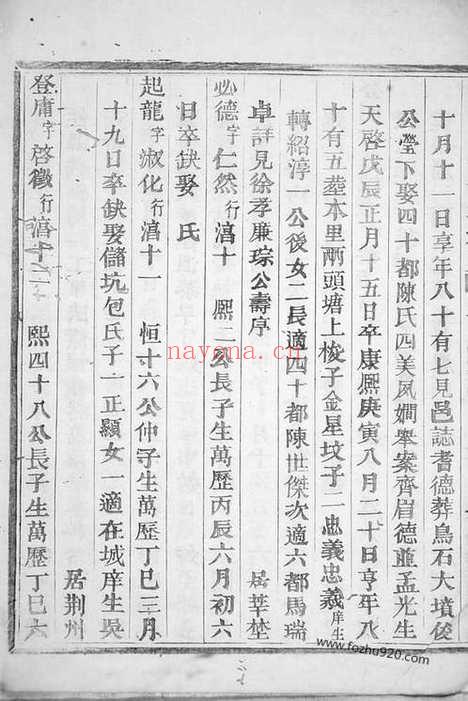 十月十一日享年八十有七見邑誌耆德葬烏石大墳後
公塋下娶四十都陳氏四美凤嫻舉案齊眉德並孟光生
天啓戊辰正月十五日卒康熙庚寅八月二十日享年八
十有五塟本里兩頭塘上梭子金星坟子二忠義忠義庠生
轉紹淳一公後女二長適四十都陳世傑次適六都馬瑞
卓詳見徐孝廉琮公壽序 居莘埜
必德字仁然行濇十 熙二公長子生萬歷丙辰六月初六
日卒缺娶 氏
起龍字淑化行濇十一 恒十六公仲子生萬歷丁巳三月
十九日卒缺娶儲坑包氏子一正顯女一適在城庠生吳
居荆州
登庸字啓徵行濇十二 熙四十八公長子生萬歷丁巳六
nayona.cn
www.fozhu920.com